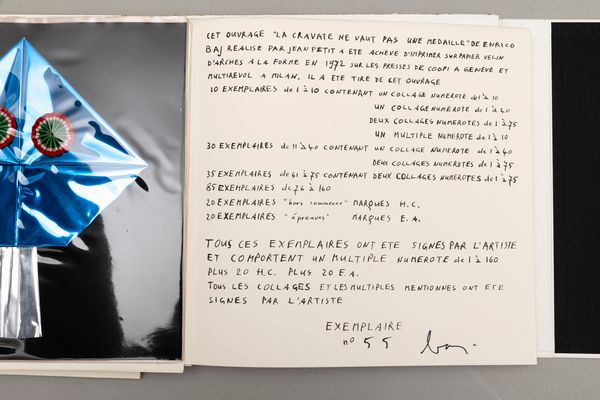 CET OUVRAGE "LA CRAVATE NE VAUT PAS UNE MEDAILLE" DE ENRICO
BAJ REALISE PAR JEAN PETIT A ETE ACHEVE D'IMPRIMER SUR PAPIER VELIN
D'ARCHES A LA FORME EN 1972 SUR LES PRESSES DE COOPI A GENEVE ET
MULTIREVOL A MILAN. IL A ETE TIRE DE CET OUVRAGE
10 EXEMPLAIRES de 1 à 10 CONTENANT UN COLLAGE NUMEROTE de 1 à 10
UN COLLAGE NUMEROTE de 1 à 40
DEUX COLLAGES NUMEROTES de 1 à 75
UN MULTIPLE NUMEROTE de 1 à 10
30 EXEMPLAIRES de 11 à 40 CONTENANT UN COLLAGE NUMEROTE de 1 à 40
DEUX COLLAGES NUMEROTES de 1 à 75
35 EXEMPLAIRES de 41 à 75 CONTENANT DEUX COLLAGES NUMEROTES de 1 à 75
85 EXEMPLAIRES de 76 à 160
20 EXEMPLAIRES "hors commerce" MARQUES H.C.
20 EXEMPLAIRES "épreuves" MARQUES E.A.
TOUS CES EXEMPLAIRES ONT ETE SIGNES PAR L'ARTISTE
ET COMPORTENT UN MULTIPLE NUMEROTE de 1 à 160
PLUS 20 H.C. PLUS 20 E.A.
TOUS LES COLLAGES ET LES MULTIPLES MENTIONNES ONT ETE
SIGNES PAR L'ARTISTE
EXEMPLAIRE
no 55 baj.